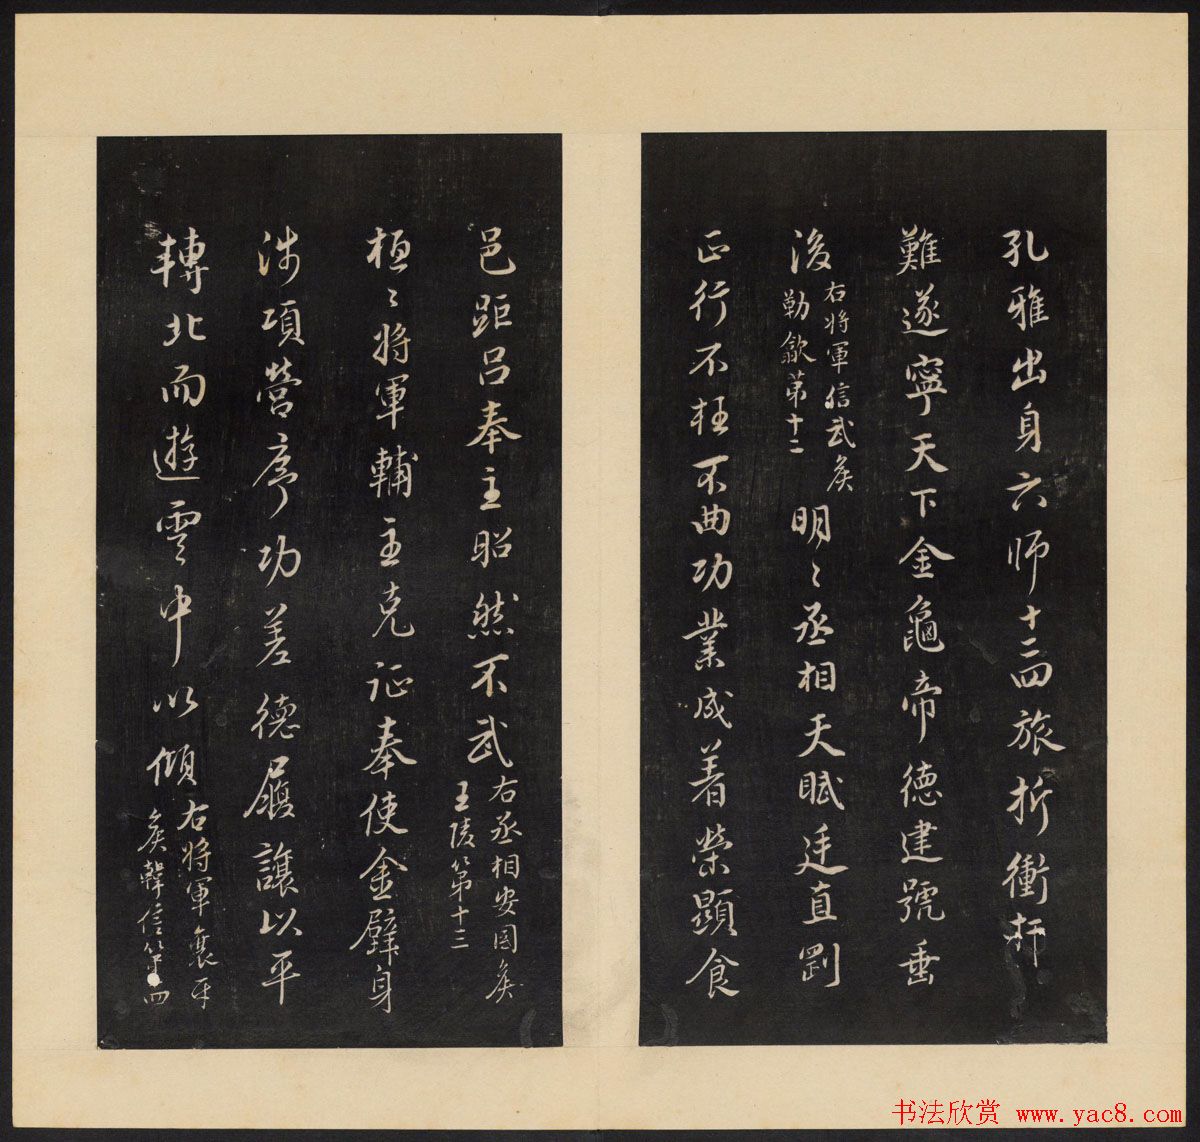 孔雅出身六师十二四旅折衝扞
難遂寧天下金龜帝德建號垂
後
右将軍信武矦
勒歙苐十二
明〻丞相天賦廷直剛
正行不枉不曲功業成着榮顯食
邑距吕奉主昭然不武
右丞相安国矦
王陵第十三
桓〻将軍輔主克征奉使金璧身
涉項營序功差德履讓以平
轉北而遊雲中以傾
右将軍襄平
矦韓信第四
书法欣赏 www.yac8.com